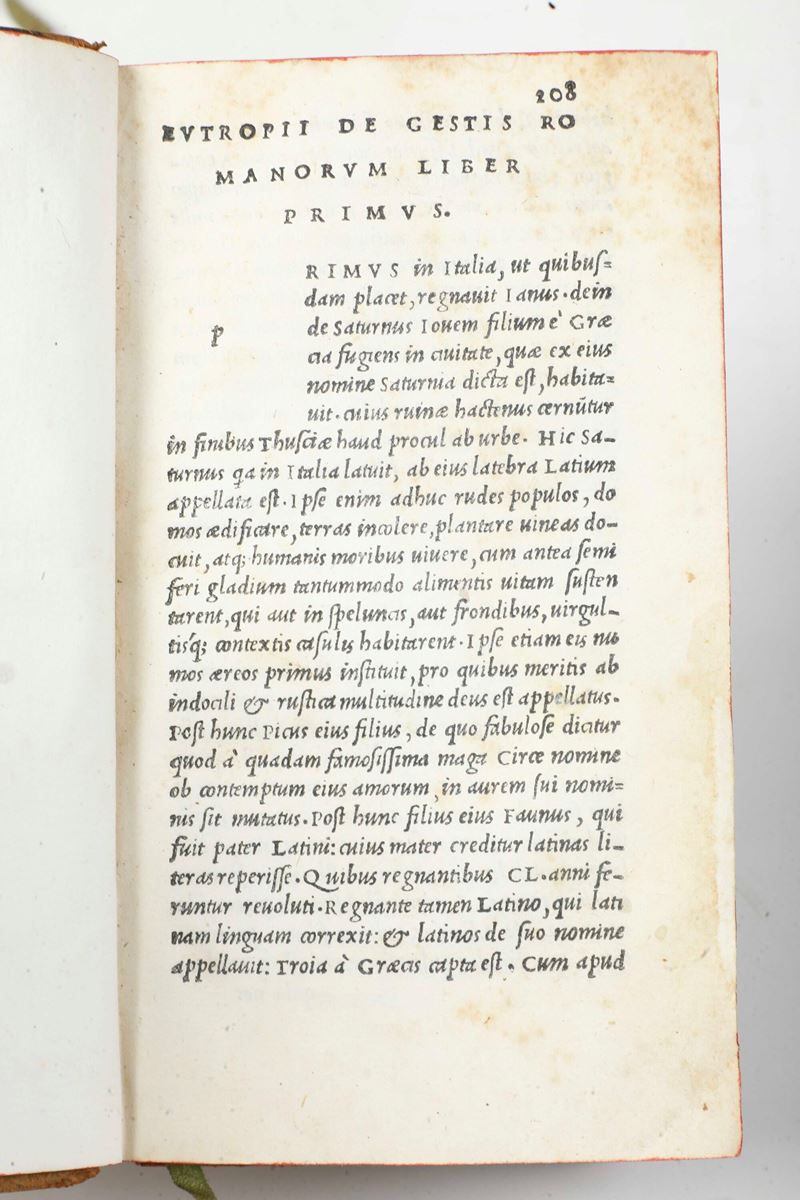 208
EVTROPII DE GESTIS RO
MANORVM LIBER
PRIMVS.
p
RIMVS in Italia, ut quibuſ=
dam placet, regnauit Ianus. dein
de Saturnus Iouem filium è Græ
cia fugiens in ciuitate, quæ ex eius
nomine Saturnia dicta eſt, habita=
uit. cuius ruinæ hactenus cernūtur
in finibus Thuſciæ haud procul ab urbe. Hic Sa-
turnus qa in Italia latuit, ab eius latebra Latium
appellata eſt. Ipſe enim adhuc rudes populos, do
mos ædificare, terras incolere, plantare uineas do-
cuit, atq; humanis moribus uiuere, cum antea ſemi
feri gladium tantummodo alimentis uitam ſuſten
tarent, qui aut in ſpeluncis, aut frondibus, uirgul-
tisq́; contextis caſulis habitarent. Ipſe etiam eis nu
mos æreos primus inſtituit, pro quibus meritis ab
indocili & ruſtica multitudine deus eſt appellatus.
Poſt hunc Picus eius filius, de quo fabuloſe dicitur
quod à quadam famoſiſſima maga Circe nomine
ob contemptum eius amorum, in auem ſui nomi=
nis ſit mutatus. Poſt hunc filius eius Faunus, qui
fuit pater Latini: cuius mater creditur latinas li-
teras reperiſſe. Quibus regnantibus CL. anni fe-
runtur reuoluti. Regnante tamen Latino, qui lati
nam linguam correxit: & latinos de ſuo nomine
appellauit: Troia à Græcis capta eſt. Cum apud